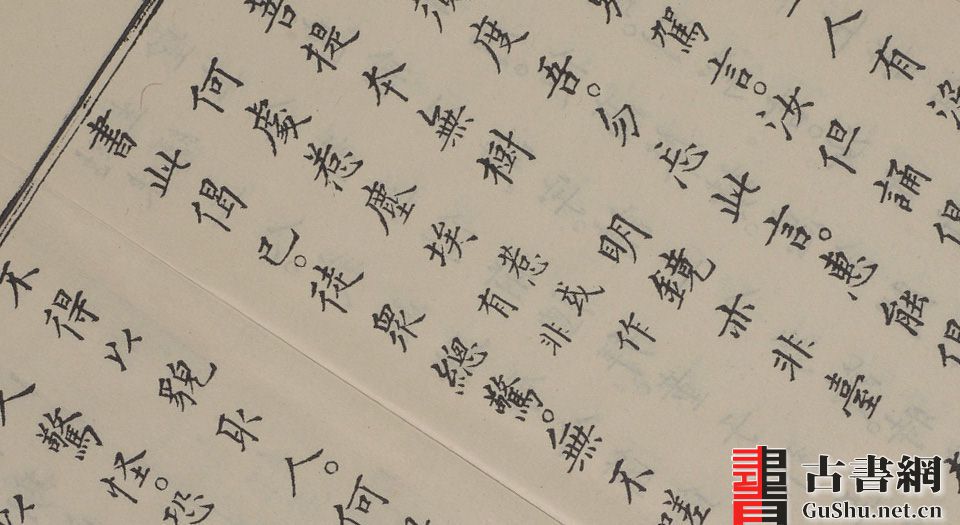 人有沒
駕言。汝但誦偈
度吾。勿忘此言。惠能偈
菩提本無樹 明鏡亦非臺
何處惹塵埃 惹或作
有非
書此偈已。徒眾總驚。無不嗟
不得以貌取人。何
人驚怪。恐
以
古書網
GuShu.net.cn